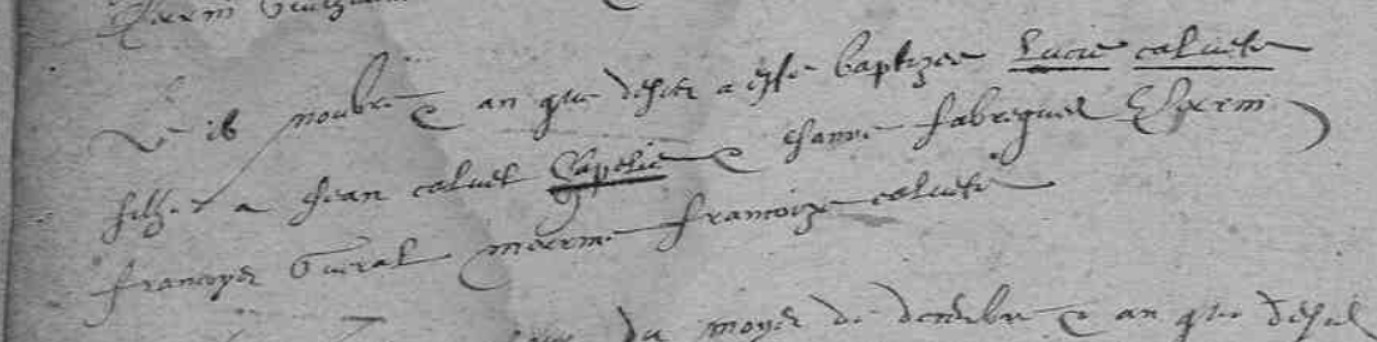 Le 16 novbre an que desus a este baptizee Lucie calvete
filhe a Jean calvet Chappelie e Janne fabreguel
francoys Guiral meerine francoize calvete
du moys de decembre an que desus